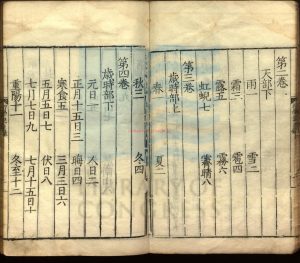 第二卷
天部下
雨 雪二
霜三 雹四
露五 霧六
虹蜺七 霽晴八
第三卷
歲時部上
春 夏二
秋三 冬四
第四卷
歲時部下
元日一 人日二
正月十五日三 晦日四
寒食五 三月三日六
五月五日七 伏日八
七月七日九 七月十五日十
重陽十一 冬至十二